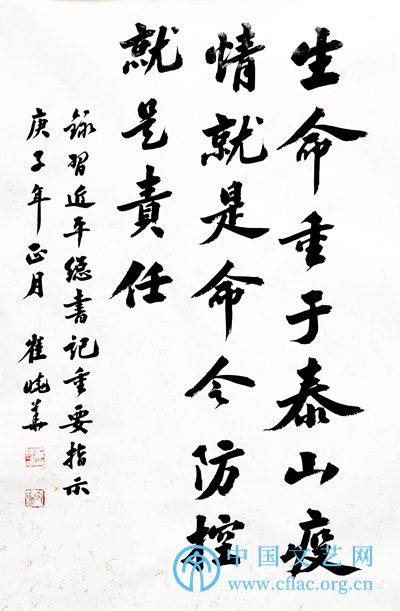 生命重于泰山疫
情就是命令防控
就是責任
録習近平總書記重要指示
庚子年正月 崔曉華
中国文艺网
www.cflac.org.cn